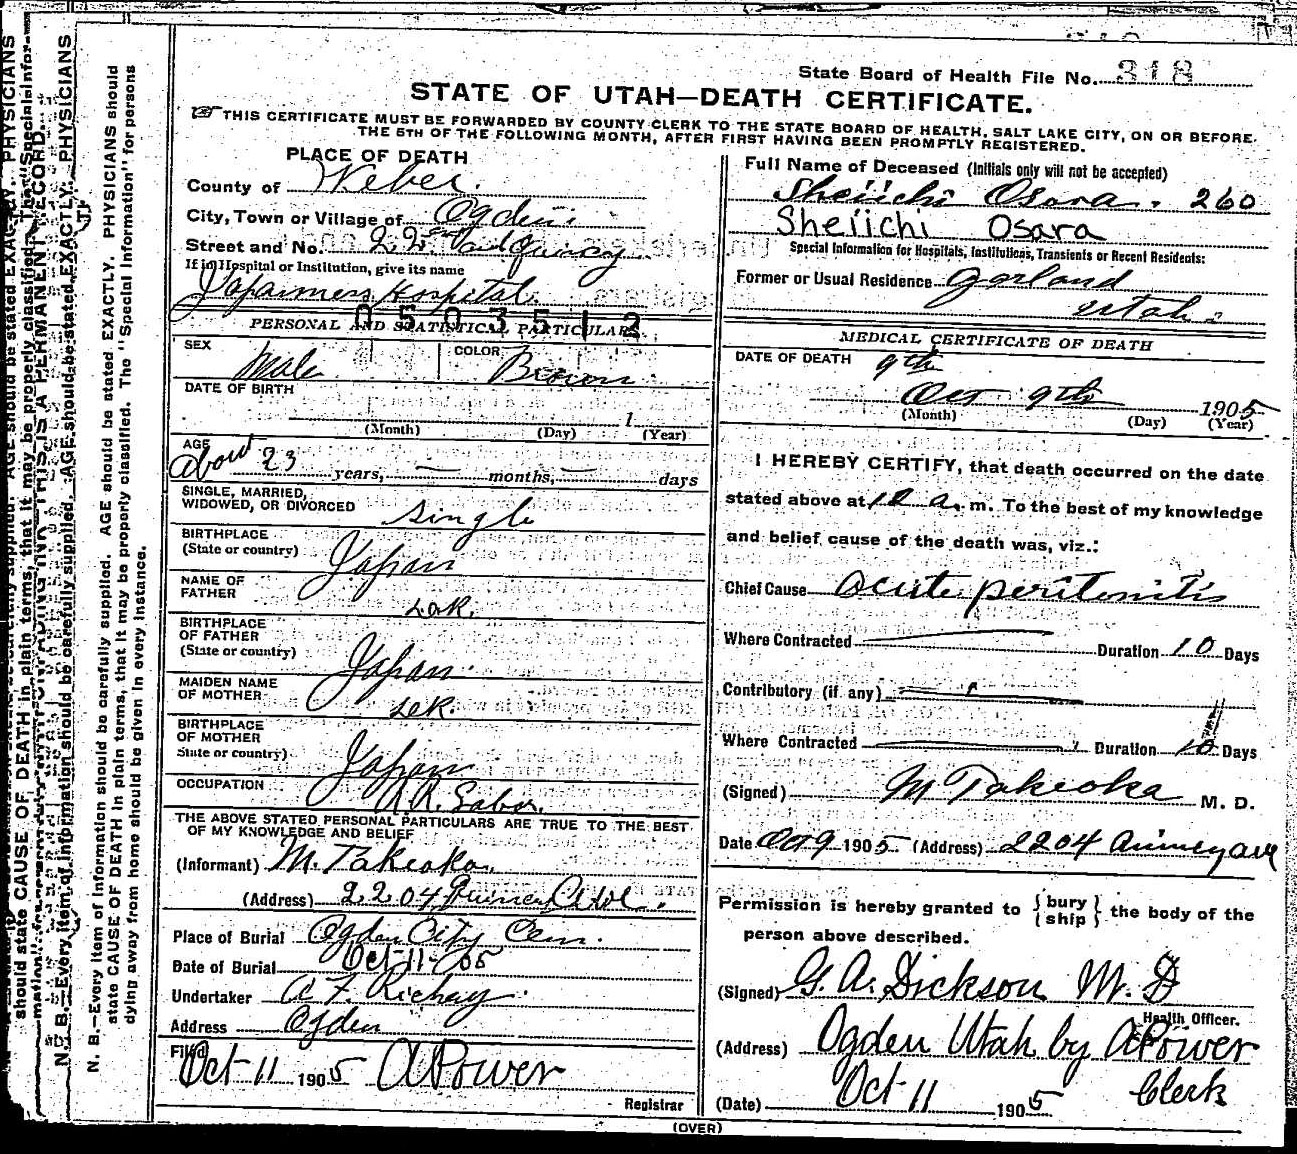 State Board of Health File No. 318
STATE OF UTAH—DEATH CERTIFICATE.
THIS CERTIFICATE MUST BE FORWARDED BY COUNTY CLERK TO THE STATE BOARD OF HEALTH, SALT LAKE CITY, ON OR BEFORE
THE 5TH OF THE FOLLOWING MONTH, AFTER FIRST HAVING BEEN PROMPTLY REGISTERED.
PLACE OF DEATH
County of Weber.
City, Town or Village of Ogden
Street and No. 22nd and Quincy
If in Hospital or Institution, give its name
Hospital
0503512
PERSONAL AND STATISTICAL PARTICULARS
SEX Male COLOR Brown
DATE OF BIRTH
1
(Month) (Day) (Year)
AGE
About 23 years, — months, — days
SINGLE, MARRIED,
WIDOWED, OR DIVORCED single
BIRTHPLACE
(State or country) Japan
NAME OF
FATHER
BIRTHPLACE
OF FATHER
(State or country) Japan
MAIDEN NAME
OF MOTHER
BIRTHPLACE
OF MOTHER
State or country) Japan
OCCUPATION R.R. Labor.
THE ABOVE STATED PERSONAL PARTICULARS ARE TRUE TO THE BEST
OF MY KNOWLEDGE AND BELIEF
(Informant) M. Takeoka
(Address) 2204 Quincy Ave.
Place of Burial Ogden City Cem.
Date of Burial Oct-11-05
Undertaker A F. Richey
Address Ogden
Filed
Oct 11 1905 A Power
Registrar
Full Name of Deceased (Initials only will not be accepted)
Sheiichi Osara. 260
Sheiichi Osara
Special Information for Hospitals, Institutions, Transients or Recent Residents:
Former or Usual Residence Garland
Utah.
MEDICAL CERTIFICATE OF DEATH
DATE OF DEATH 9th
Oct 9th 1905
(Month) (Day) (Year)
I HEREBY CERTIFY, that death occurred on the date
stated above at 12 a. m. To the best of my knowledge
and belief cause of the death was, viz.:
Chief Cause acute peritonitis
Where Contracted Duration 10 Days
Contributory (if any)
Where Contracted Duration 10 Days
(Signed) M Takeoka M. D.
Date Oct 9 1905 (Address) 2204 Quincy ave
Permission is hereby granted to { bury ship } the body of the
person above described.
(Signed) G. A. Dickson M. D
Health Officer.
(Address) Ogden Utah by A Power
Clerk
(Date) Oct 11 1905
(OVER)
N. B.—Every item of information should be carefully supplied. AGE should be stated EXACTLY. PHYSICIANS should
state CAUSE OF DEATH in plain terms, that it may be properly classified. The "Special Information" for persons
dying away from home should be given in every instance.